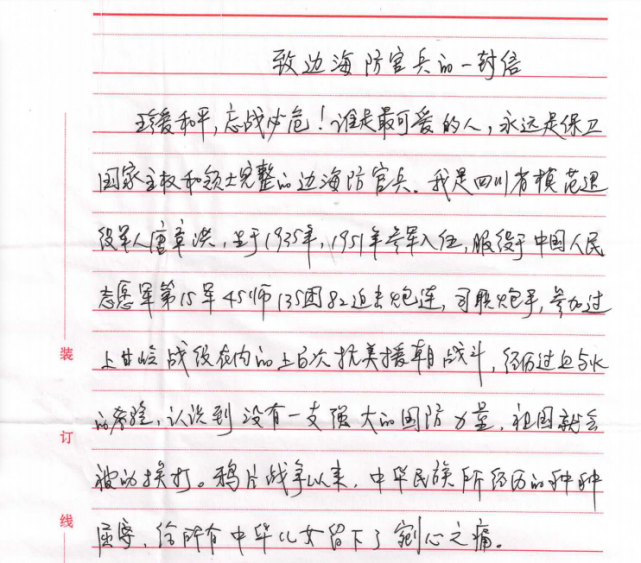 致边海防官兵的一封信
珍爱和平，忘战必危！谁是最可爱的人，永远是保卫
国家主权和领土完整的边海防官兵。我是四川省模范退
役军人唐章洪，生于1935年，1951年参军入伍，服役于中国人民
志愿军第15军45师135团82迫击炮连，司职炮手，参加过
上甘岭战役在内的上百次抗美援朝战斗，经历过血与火
的考验，认识到没有一支强大的国防力量，祖国就会
被动挨打。鸦片战争以来，中华民族所经历的种种
屈辱，给所有中华儿女留下了剜心之痛。
装
订
线